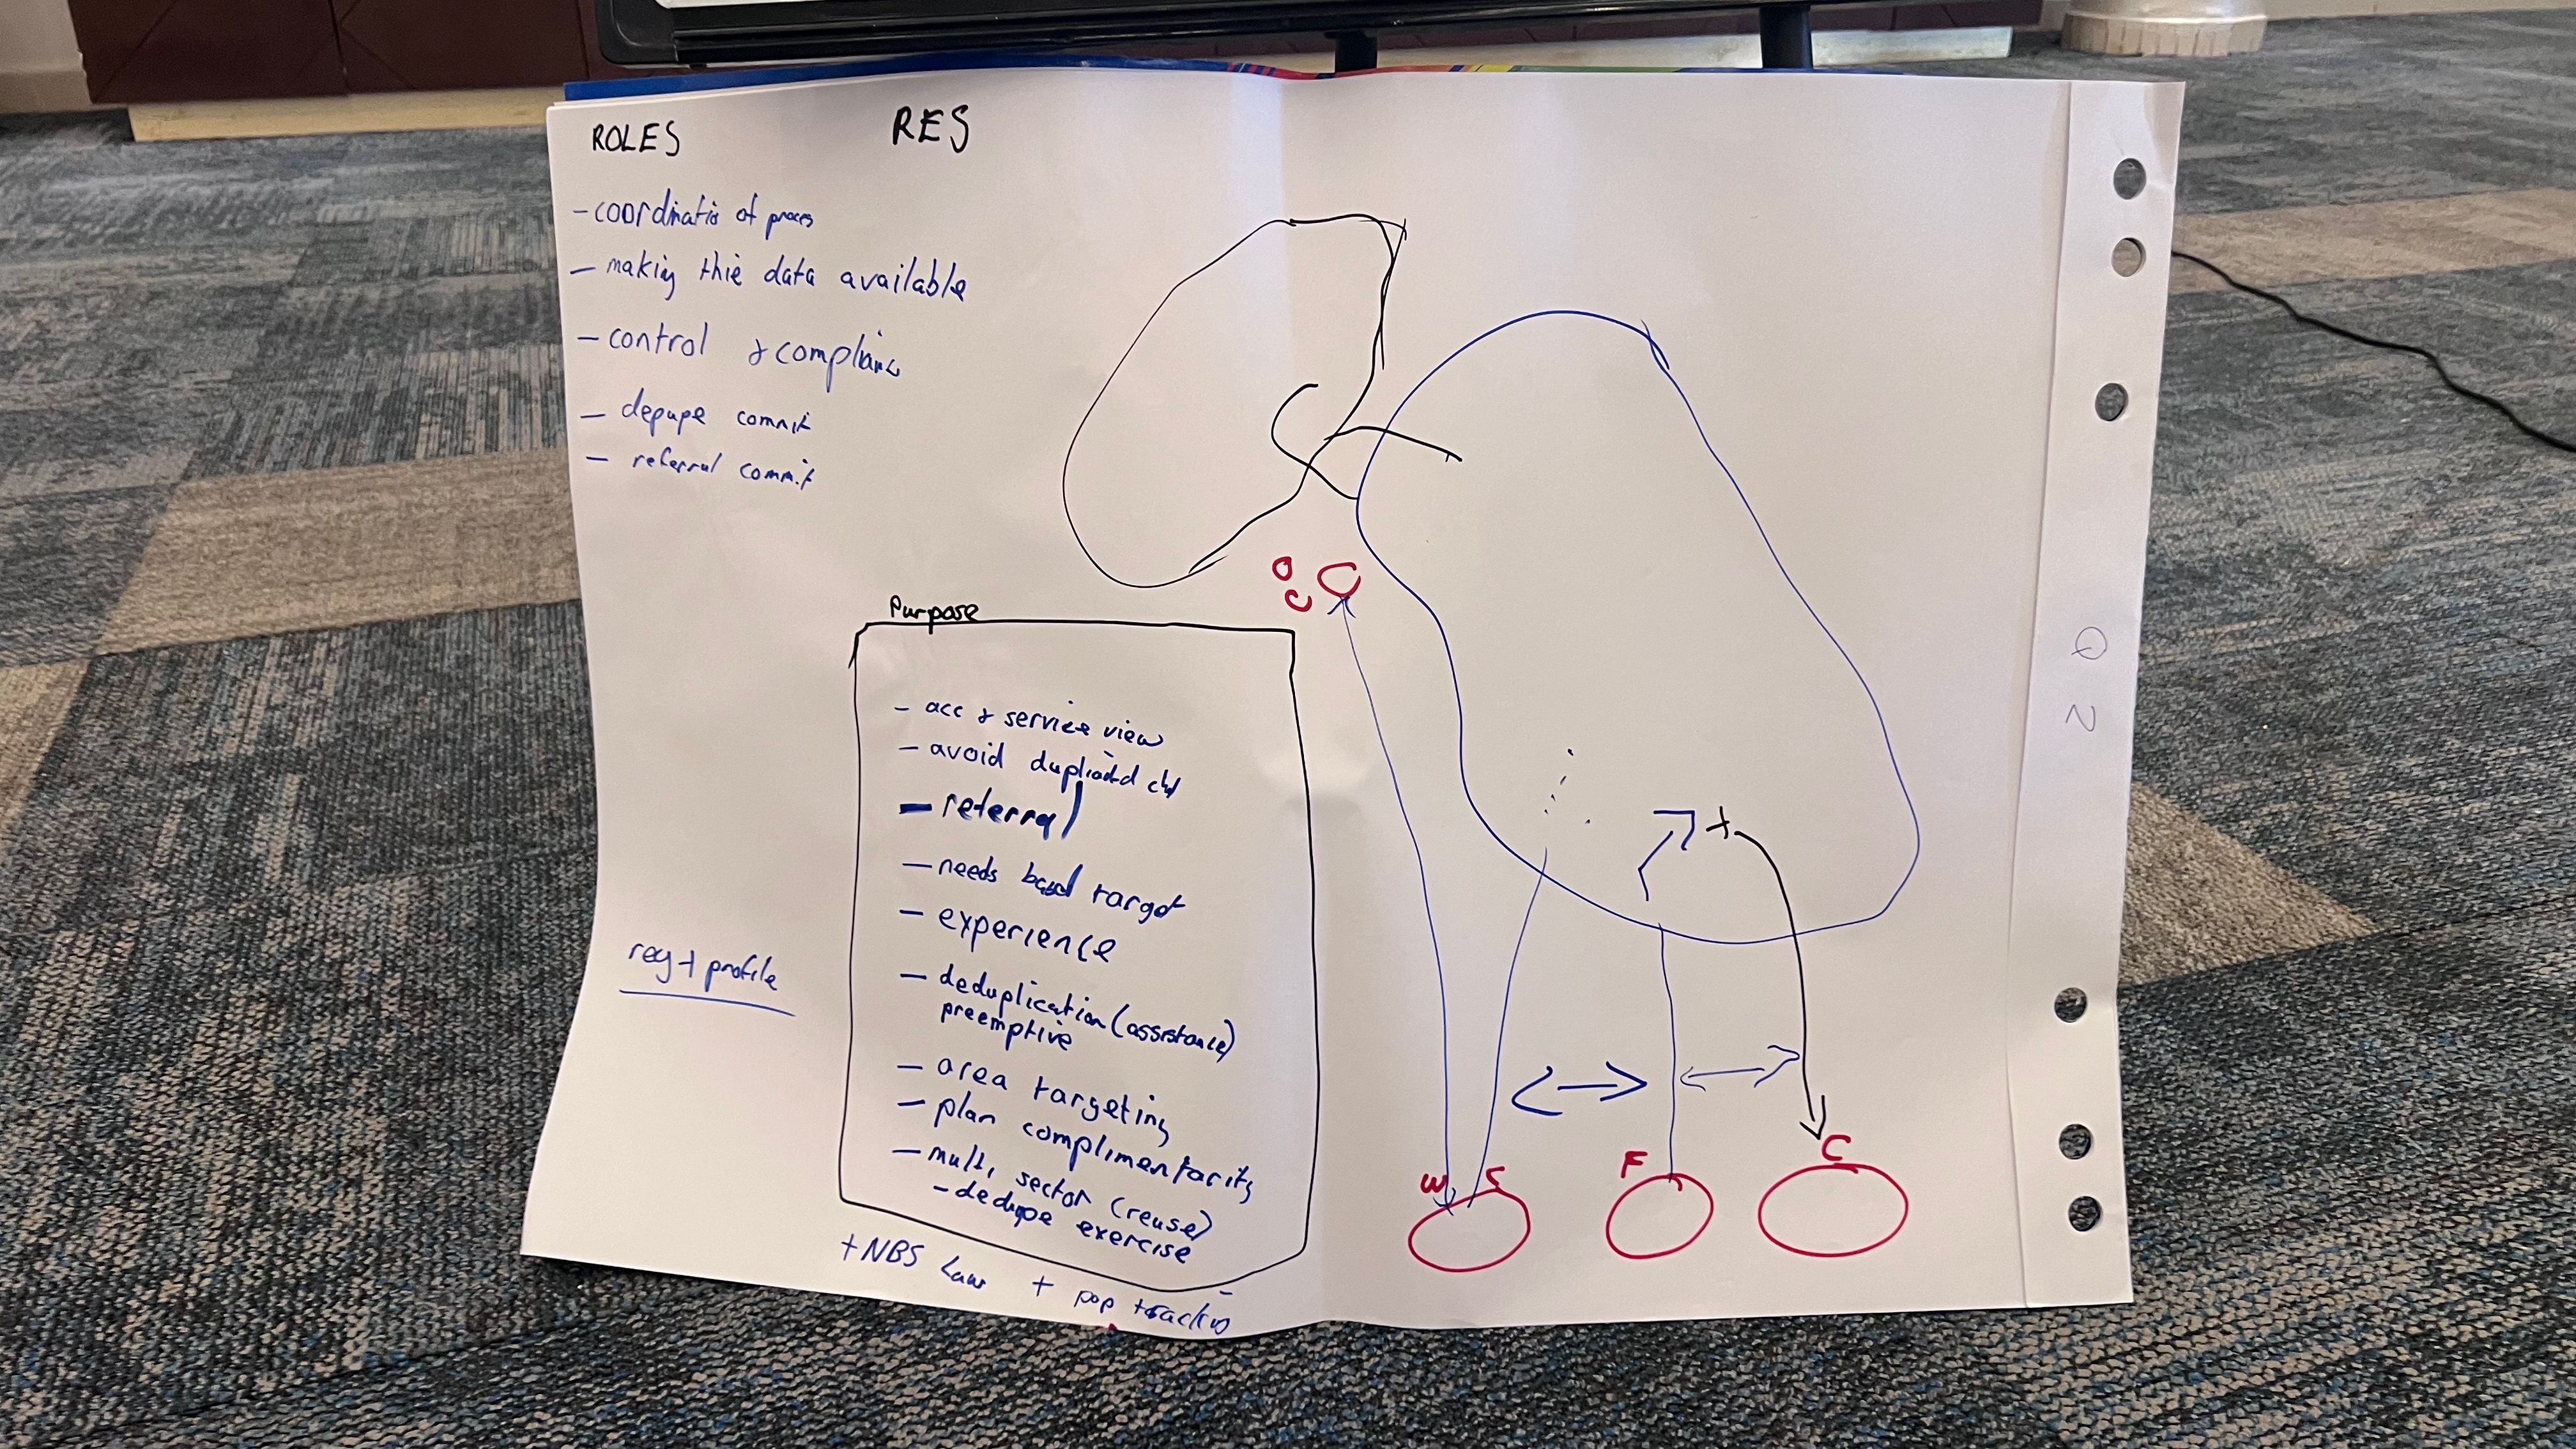 ROLES
RES
- coordinatio of proces
- making thie data available
- control & complianc
- commit
- referral commit
Purpose
- acc & service view
- avoid
- referral
- needs based target
- experience
- deduplication (assistance)
preemptive
- area targeting
- plan complimentarity
- multi sector (reuse)
- dedupe exercise
+ NBS Law + pop
reg + profile
W S
F
C